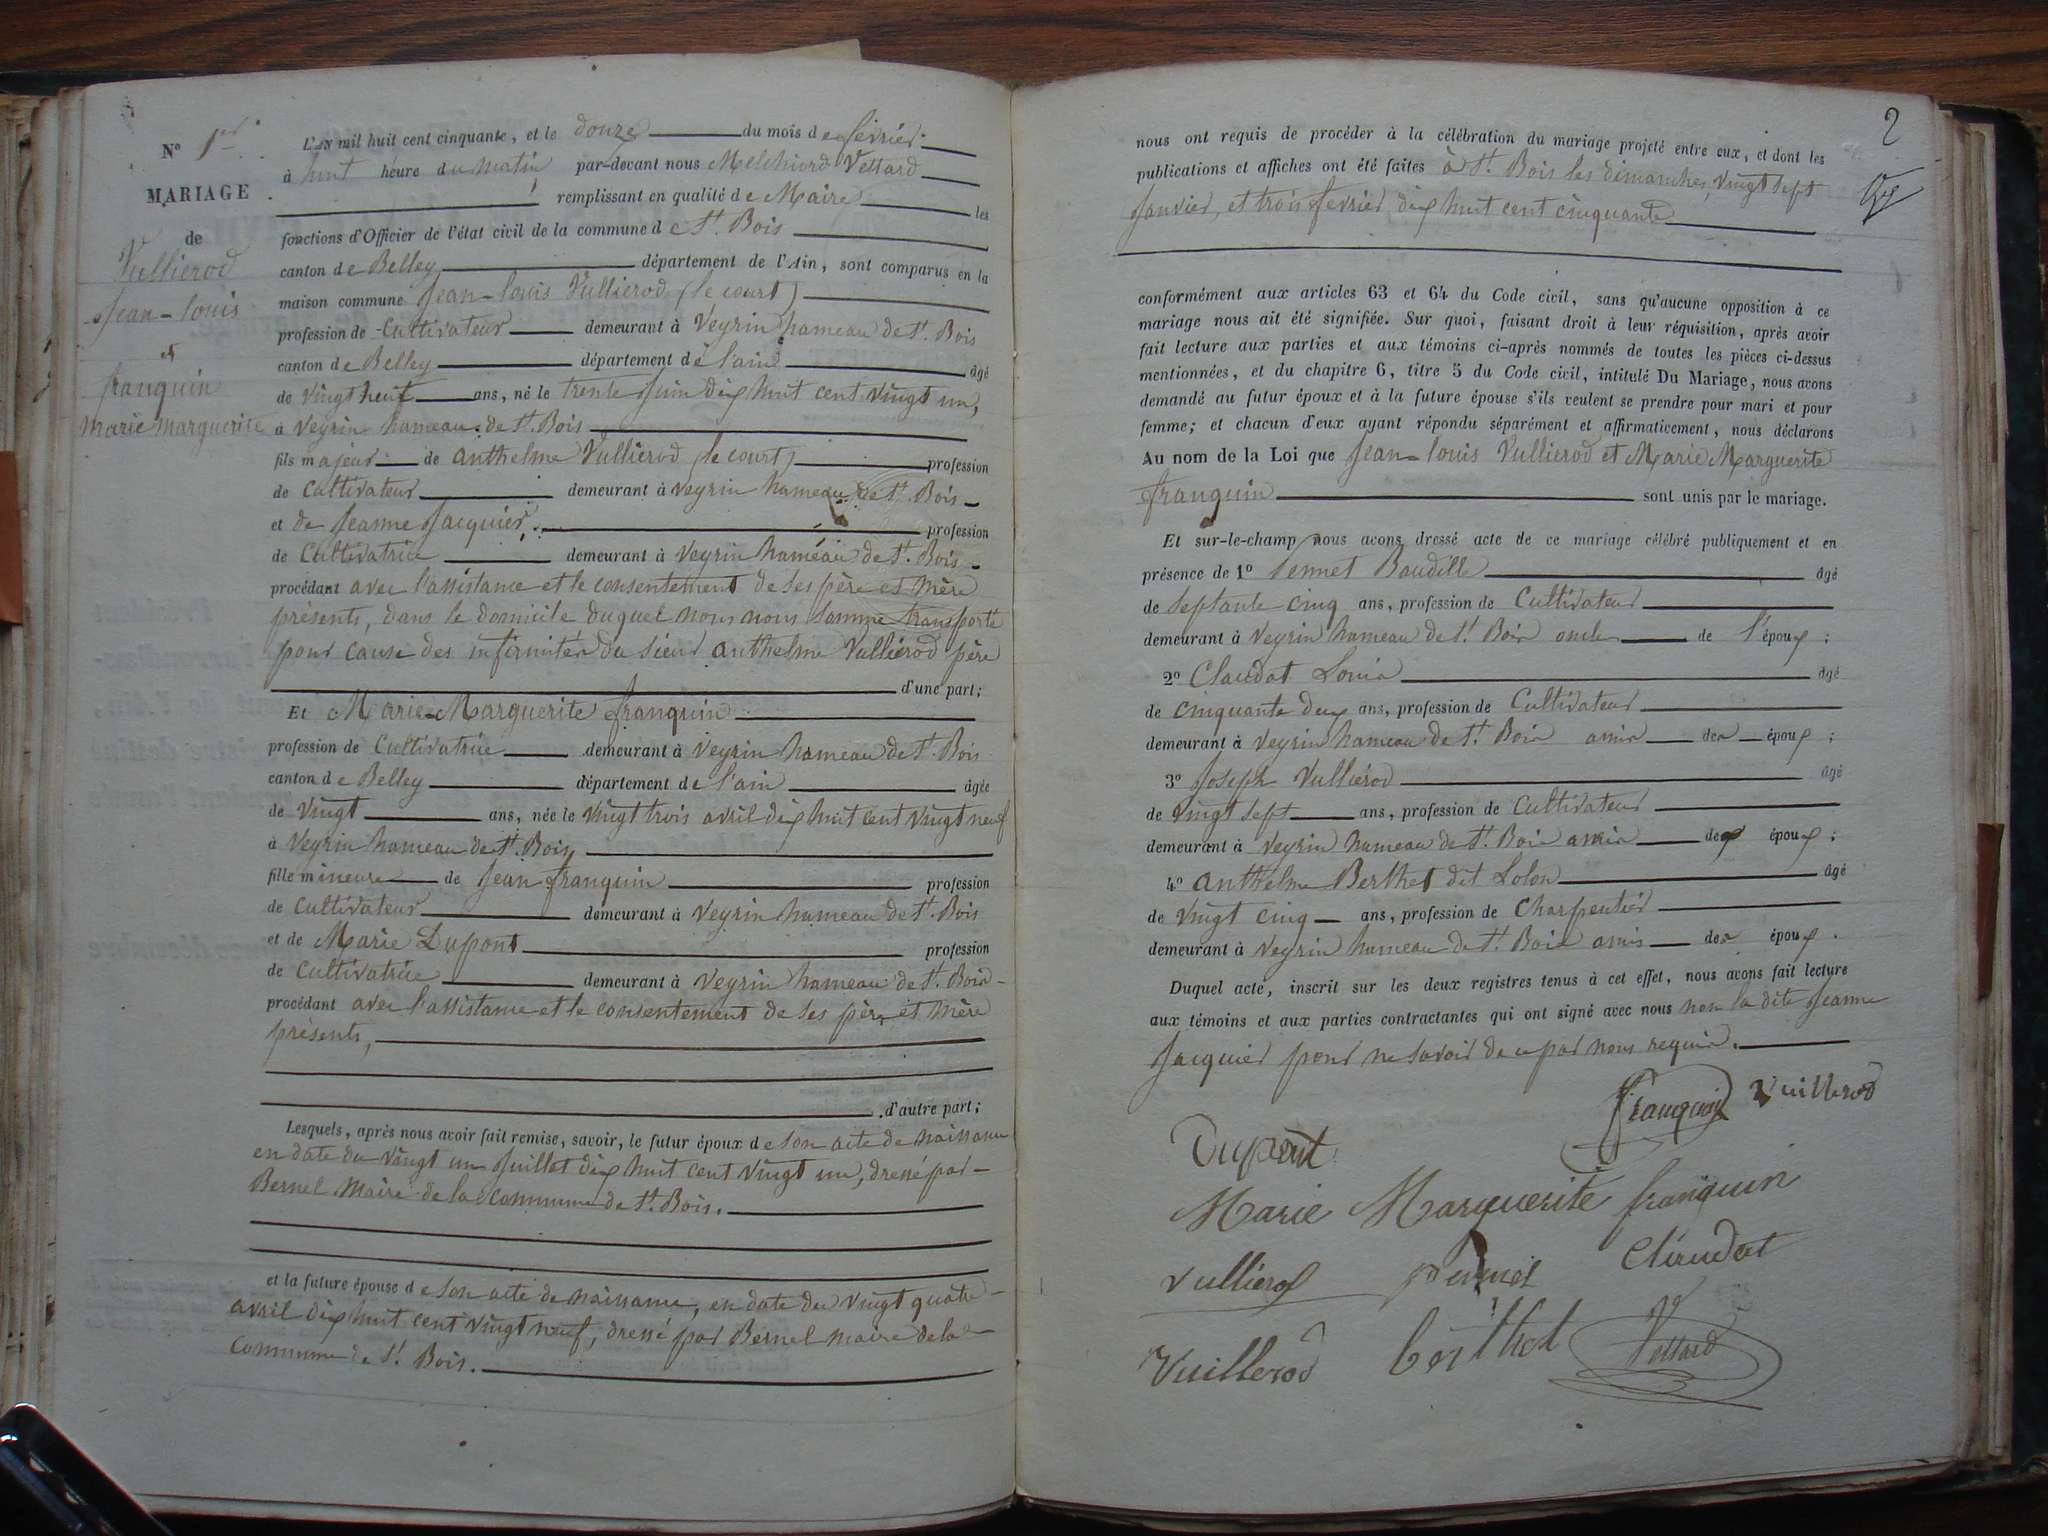 N° 1er
MARIAGE
de
Vullierod
Jean-louis
et
franquin
Marie Marguerite
L'AN mil huit cent cinquante, et le douze du mois de février
à huit heure du matin par-devant nous Melchiord Vettard
remplissant en qualité de Maire les
fonctions d'Officier de l'état civil de la commune de St. Bois
canton de Belley département de l'Ain, sont comparus en la
maison commune Jean-louis Vullierod (le court)
profession de Cultivateur demeurant à Veyrin hameau de St. Bois
canton de Belley département de l'ain âgé
de vingt neuf ans, né le trente Juin dix huit cent vingt un,
à Veyrin hameau de St. Bois
fils majeur de anthelme Vullierod (le court) profession
de Cultivateur demeurant à veyrin hameau de St. Bois
et de Jeanne Jacquier, profession
de Cultivatrice demeurant à Veyrin hameau de St. Bois
procédant avec l'assistance et le consentement de ses père et mère
présents, dans le domicile duquel nous nous somme transporté
pour cause des infirmités du sieur anthelme Vullierod père
d'une part;
Et Marie-Marguerite franquin
profession de Cultivatrice demeurant à Veyrin hameau de St. Bois
canton de Belley département de l'ain âgée
de vingt ans, née le vingt trois avril dix huit cent vingt neuf
à Veyrin hameau de St. Bois
fille mineure de Jean franquin profession
de Cultivateur demeurant à Veyrin hameau de St. Bois
et de Marie Dupont profession
de Cultivatrice demeurant à Veyrin hameau de St. Bois
procédant avec l'assistance et le consentement de ses père et mère
présents,
d'autre part;
Lesquels, après nous avoir fait remise, savoir, le futur époux de son acte de naissance
en date du vingt un Juillet dix huit cent vingt un, dressé par
Bernel Maire de la commune de St. Bois.
et la future épouse de son acte de naissance, en date du vingt quatre
avril dix huit cent vingt neuf, dressé par Bernel maire de la
Commune de St. Bois.
2
nous ont requis de procéder à la célébration du mariage projeté entre eux, et dont les
publications et affiches ont été faites à St. Bois les dimanches, vingt sept
Janvier, et trois fevrier dix huit cent cinquante
conformément aux articles 63 et 64 du Code civil, sans qu'aucune opposition à ce
mariage nous ait été signifiée. Sur quoi, faisant droit à leur réquisition, après avoir
fait lecture aux parties et aux témoins ci-après nommés de toutes les pièces ci-dessus
mentionnées, et du chapitre 6, titre 5 du Code civil, intitulé Du Mariage, nous avons
demandé au futur époux et à la future épouse s'ils veulent se prendre pour mari et pour
femme; et chacun d'eux ayant répondu séparément et affirmativement, nous déclarons
Au nom de la Loi que Jean-louis Vullierod et Marie Marguerite
franquin sont unis par le mariage.
Et sur-le-champ nous avons dressé acte de ce mariage célébré publiquement et en
présence de 1° Pennet Baudille âgé
de septante cinq ans, profession de Cultivateur
demeurant à Veyrin hameau de St. Bois oncle de l'époux;
2° Claudat Louis âgé
de cinquante deux ans, profession de Cultivateur
demeurant à Veyrin hameau de St. Bois amis des époux;
3° Joseph Vulliérod âgé
de vingt sept ans, profession de Cultivateur
demeurant à Veyrin hameau de St. Bois amis des époux;
4° anthelme Berthet dit Lolon âgé
de vingt cinq ans, profession de Charpentier
demeurant à Veyrin hameau de St. Bois amis des époux.
Duquel acte, inscrit sur les deux registres tenus à cet effet, nous avons fait lecture
aux témoins et aux parties contractantes qui ont signé avec nous non la dite Jeanne
Jacquier pour ne savoir de ce par nous requis.
franquin Vuillerod
Dupont
Marie Marguerite franquin
Vullierod Pennet Claudat
Vuillerod berthet Vettard